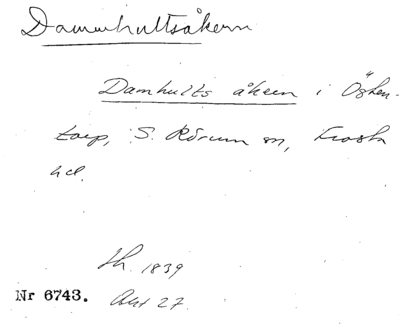 Dammhultsåkern
Damhults åkern i Öshen-
torp, S. Rörum sn, Frosta
hd.
Sk. 1839
Nr 6743. Akt 27.